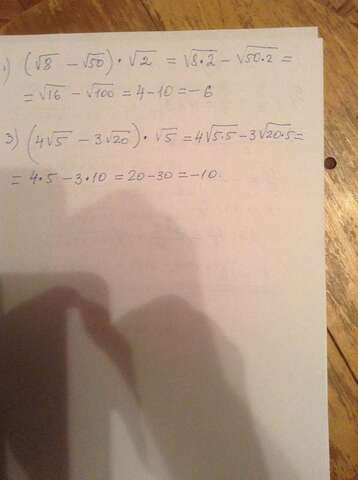 1) (√8 − √50) · √2 = √8·2 − √50·2 =
= √16 − √100 = 4 − 10 = −6
3) (4√5 − 3√20) · √5 = 4√5·5 − 3√20·5 =
= 4·5 − 3·10 = 20 − 30 = −10.